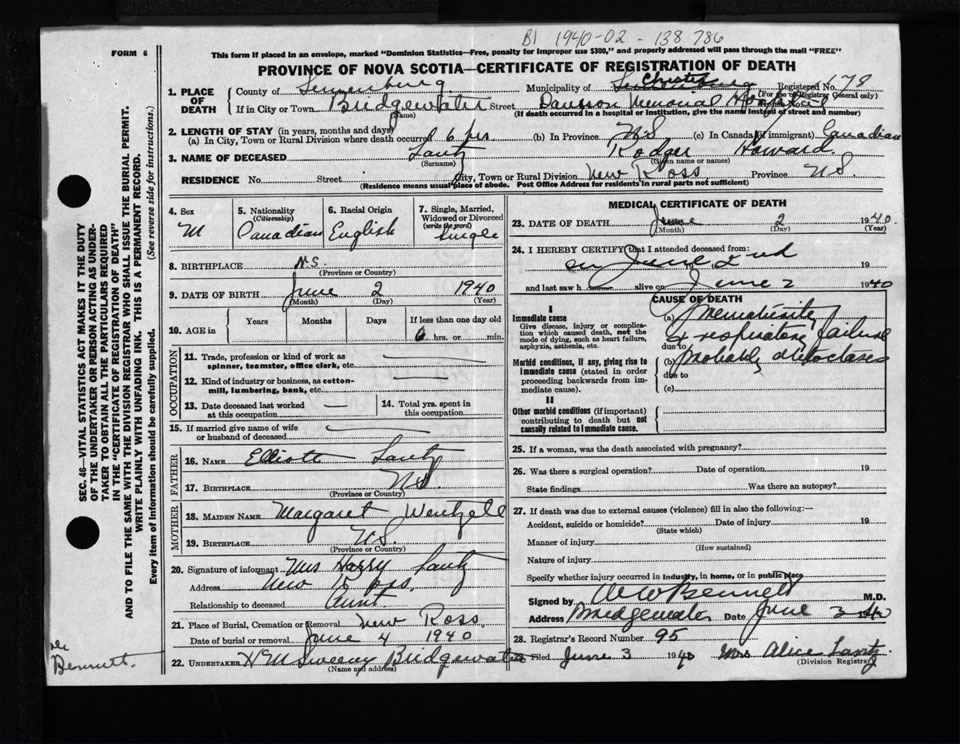 B1 1940-02-138786
FORM 6
This form if placed in an envelope, marked "Dominion Statistics—Free, penalty for improper use $300," and properly addressed will pass through the mail "FREE"
PROVINCE OF NOVA SCOTIA—CERTIFICATE OF REGISTRATION OF DEATH
1. PLACE OF DEATH
County of Lunenburg
Municipality of Lunenburg
Registered No. 678
(For use of Registrar General only)
If in City or Town Bridgewater Street Dawson Memorial Hospital
(Name)
(If death occurred in a hospital or institution, give the name instead of street and number)
2. LENGTH OF STAY (in years, months and days)
(a) In City, Town or Rural Division where death occurred 6 hrs (b) In Province N.S (c) In Canada (if immigrant) Canadian
3. NAME OF DECEASED Lantz Rodger Howard
(Surname) (Given name or names)
RESIDENCE No. Street City, Town or Rural Division New Ross Province N.S.
(Residence means usual place of abode. Post Office Address for residents in rural parts not sufficient)
4. Sex M
5. Nationality (Citizenship) Canadian
6. Racial Origin English
7. Single, Married, Widowed or Divorced (write the word) Single
8. BIRTHPLACE N.S.
(Province or Country)
9. DATE OF BIRTH June 2 1940
(Month) (Day) (Year)
10. AGE in Years Months Days If less than one day 6 hrs. or min.
OCCUPATION
11. Trade, profession or kind of work as spinner, teamster, office clerk, etc. —
12. Kind of industry or business, as cotton-mill, lumbering, bank, etc. —
13. Date deceased last worked at this occupation —
14. Total yrs. spent in this occupation
15. If married give name of wife or husband of deceased —
FATHER
16. NAME Elliott Lantz
17. BIRTHPLACE N.S.
(Province or Country)
MOTHER
18. MAIDEN NAME Margaret Wentzell
19. BIRTHPLACE N.S.
(Province or Country)
20. Signature of informant Mrs Harry Lantz
Address New Ross
Relationship to deceased Aunt
21. Place of Burial, Cremation or Removal New Ross
Date of burial or removal June 4 1940
22. UNDERTAKER H M Sweeny Bridgewater
(Name and address)
MEDICAL CERTIFICATE OF DEATH
23. DATE OF DEATH June 2 1940.
(Month) (Day) (Year)
24. I HEREBY CERTIFY that I attended deceased from:
on June 2nd 19
and last saw h alive on June 2 1940
CAUSE OF DEATH
I
Immediate cause
Give disease, injury or complication which caused death, not the mode of dying, such as heart failure, asphyxia, asthenia, etc.
(a) Prematurity
& respiratory failure
due to
Morbid conditions, if any, giving rise to immediate cause (stated in order proceeding backwards from immediate cause).
(b) Probably atelectases
due to
(c)
II
Other morbid conditions (if important) contributing to death but not causally related to immediate cause.
25. If a woman, was the death associated with pregnancy?
26. Was there a surgical operation? Date of operation 19
State findings Was there an autopsy?
27. If death was due to external causes (violence) fill in also the following:—
Accident, suicide or homicide? Date of injury 19
(State which)
Manner of injury
(How sustained)
Nature of injury
Specify whether injury occurred in industry, in home, or in public place
Signed by W Bennett M.D.
Address Bridgewater Date June 3 1940
28. Registrar's Record Number 95
29. Filed June 3 1940 Mrs Alice Lantz
(Division Registrar)
SEC. 46—VITAL STATISTICS ACT MAKES IT THE DUTY
OF THE UNDERTAKER OR PERSON ACTING AS UNDERTAKER TO OBTAIN ALL THE PARTICULARS REQUIRED
IN THE "CERTIFICATE OF REGISTRATION OF DEATH"
AND TO FILE THE SAME WITH THE DIVISION REGISTRAR WHO SHALL ISSUE THE BURIAL PERMIT.
WRITE PLAINLY WITH UNFADING INK. THIS IS A PERMANENT RECORD.
Every item of information should be carefully supplied. (See reverse side for instructions.)
Bennett.